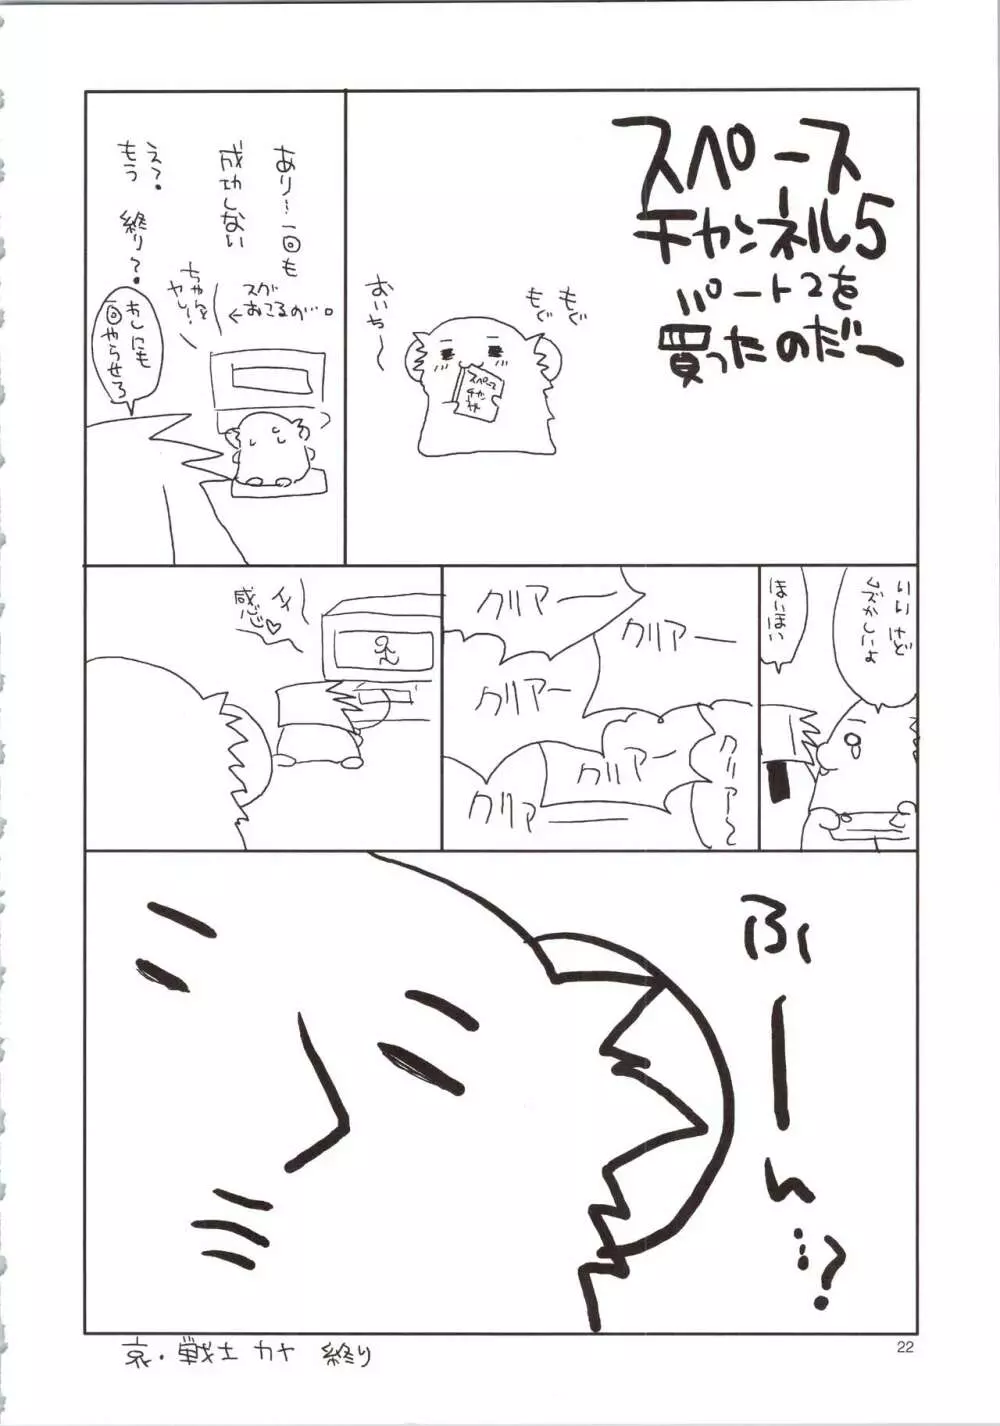 スペース
チャンネル5
パート2を
買ったのだー
もぐ
もぐ
おいち〜
スペース
チャン
ネル
あり〜一回も
成功しない
スグ
おこるの…。
ちゃんと
ヤレ!
え?
もう
終り?
おしにも
一回やらせろ
いいけど
ムズかしいよ
ほいほい
クリアー
クリアー
クリアー
クリアー
クリアー
クリアー
イイ
感じ♡
ふーん…?
哀・戦士 カヤ 終り
22